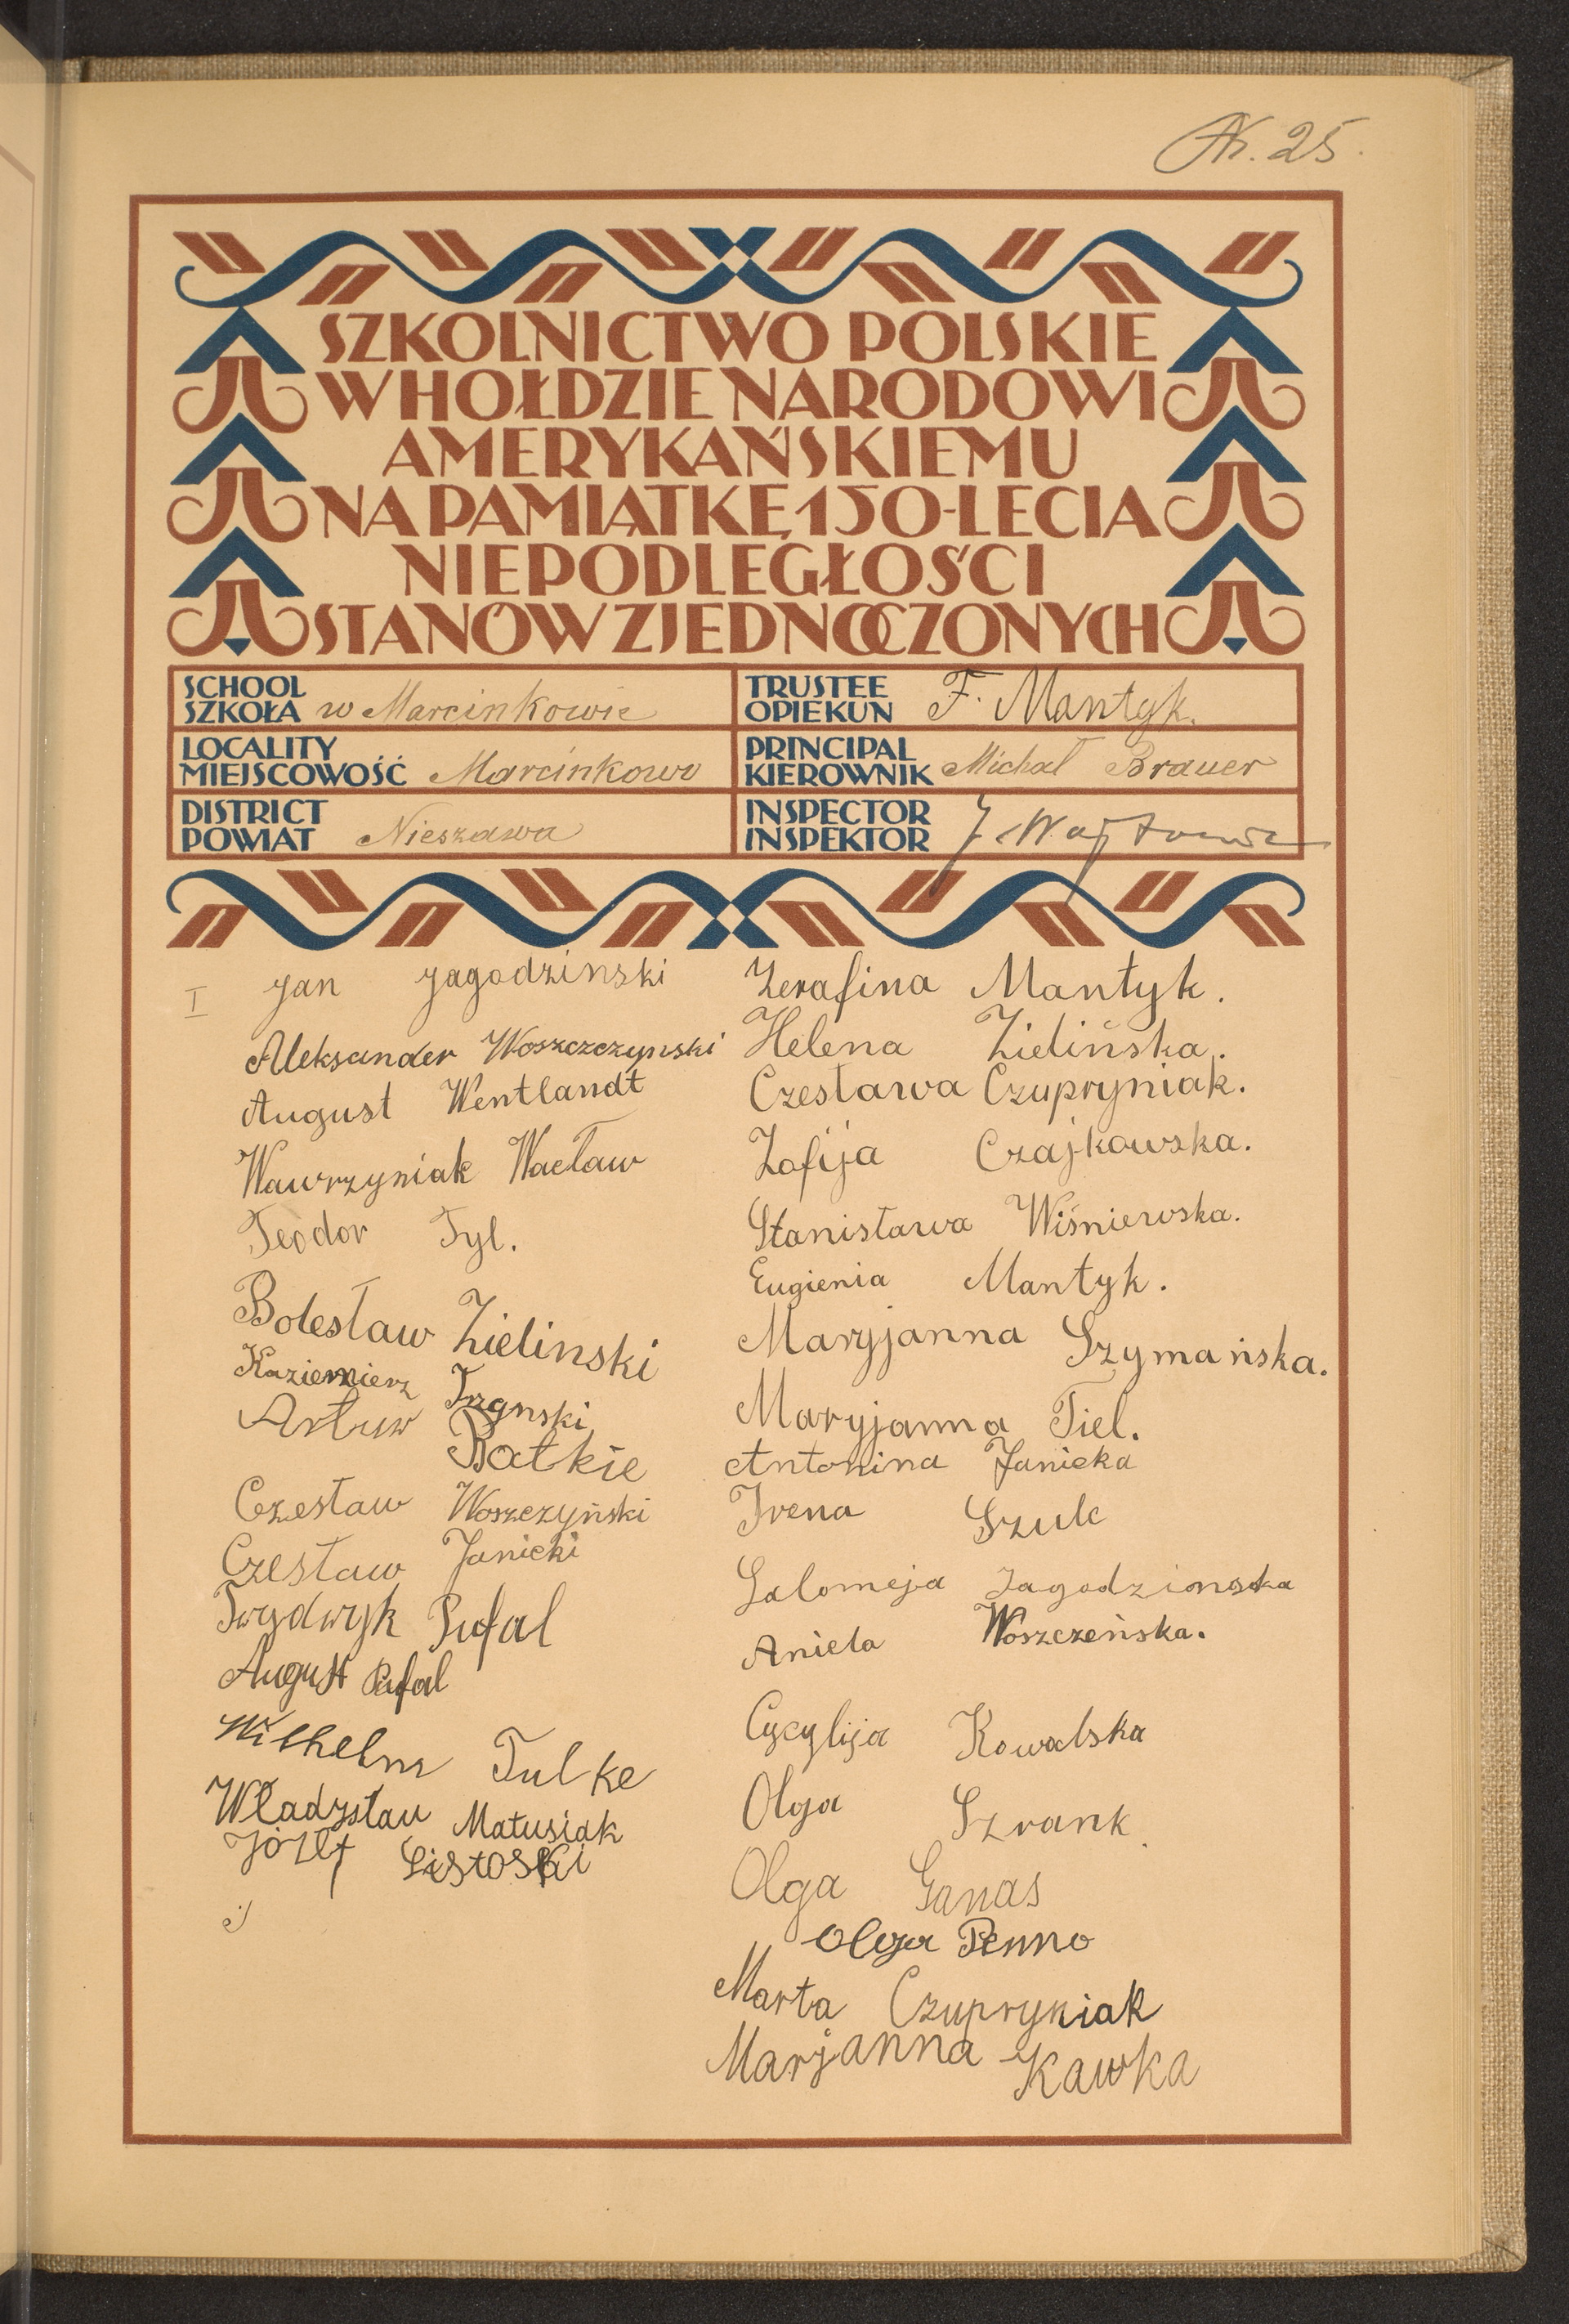 Nr. 25.
SZKOLNICTWO POLSKIE
W HOŁDZIE NARODOWI
AMERYKAŃSKIEMU
NA PAMIĄTKĘ 150-LECIA
NIEPODLEGŁOŚCI
STANÓW ZJEDNOCZONYCH
SCHOOL
SZKOŁA w Marcinkowie
TRUSTEE
OPIEKUN F. Mantyk.
LOCALITY
MIEJSCOWOŚĆ Marcinkowo
PRINCIPAL
KIEROWNIK Michał Brauer
DISTRICT
POWIAT Nieszawa
INSPECTOR
INSPEKTOR
I Jan Jagodzinski
Aleksander Woszczczynski
August Wentlandt
Wawrzyniak Wacław
Teodor Tyl.
Bolesław Zielinski
Kazimierz
Artur Batkie
Czesław Woszczyński
Czesław Janicki
Frydryk Pufal
August Pufal
Wilhelm Tulke
Władysław Matusiak
Józef Listoski
Zerafina Mantyk.
Helena Zielińska.
Czesława Czupryniak.
Zofija Czajkowska.
Stanisława Wiśniewska.
Eugienia Mantyk.
Maryjanna Szymańska.
Maryjanna Tiel.
Antonina Janicka
Irena Szulc
Salomeja Jagodzinska
Aniela Woszczeńska.
Cycylija Kowalska
Olga Szrank
Olga Ganas
Olga Penno
Marta Czupryniak
Marjanna Kawka